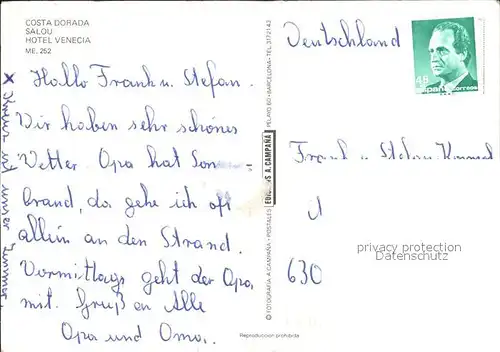 COSTA DORADA
SALOU
HOTEL VENECIA
ME. 252
Hallo Frank u. Stefan.
Wir haben sehr schönes
Wetter Opa hat Sonnen-
brand, da gehe ich oft
allein an den Strand.
Vormittags geht der Opa,
mit. Gruß an Alle
Opa und Oma.
X ist unser Zimmer.
© FOTOGRAFIA A. CAMPAÑA - POSTALES
EDICIONES A. CAMPAÑA
PELAYO 60 - BARCELONA - TEL. 3172143
Reproducción prohibida
Deutschland
45
España correos
Frank u Stefan
630
privacy protection
Datenschutz